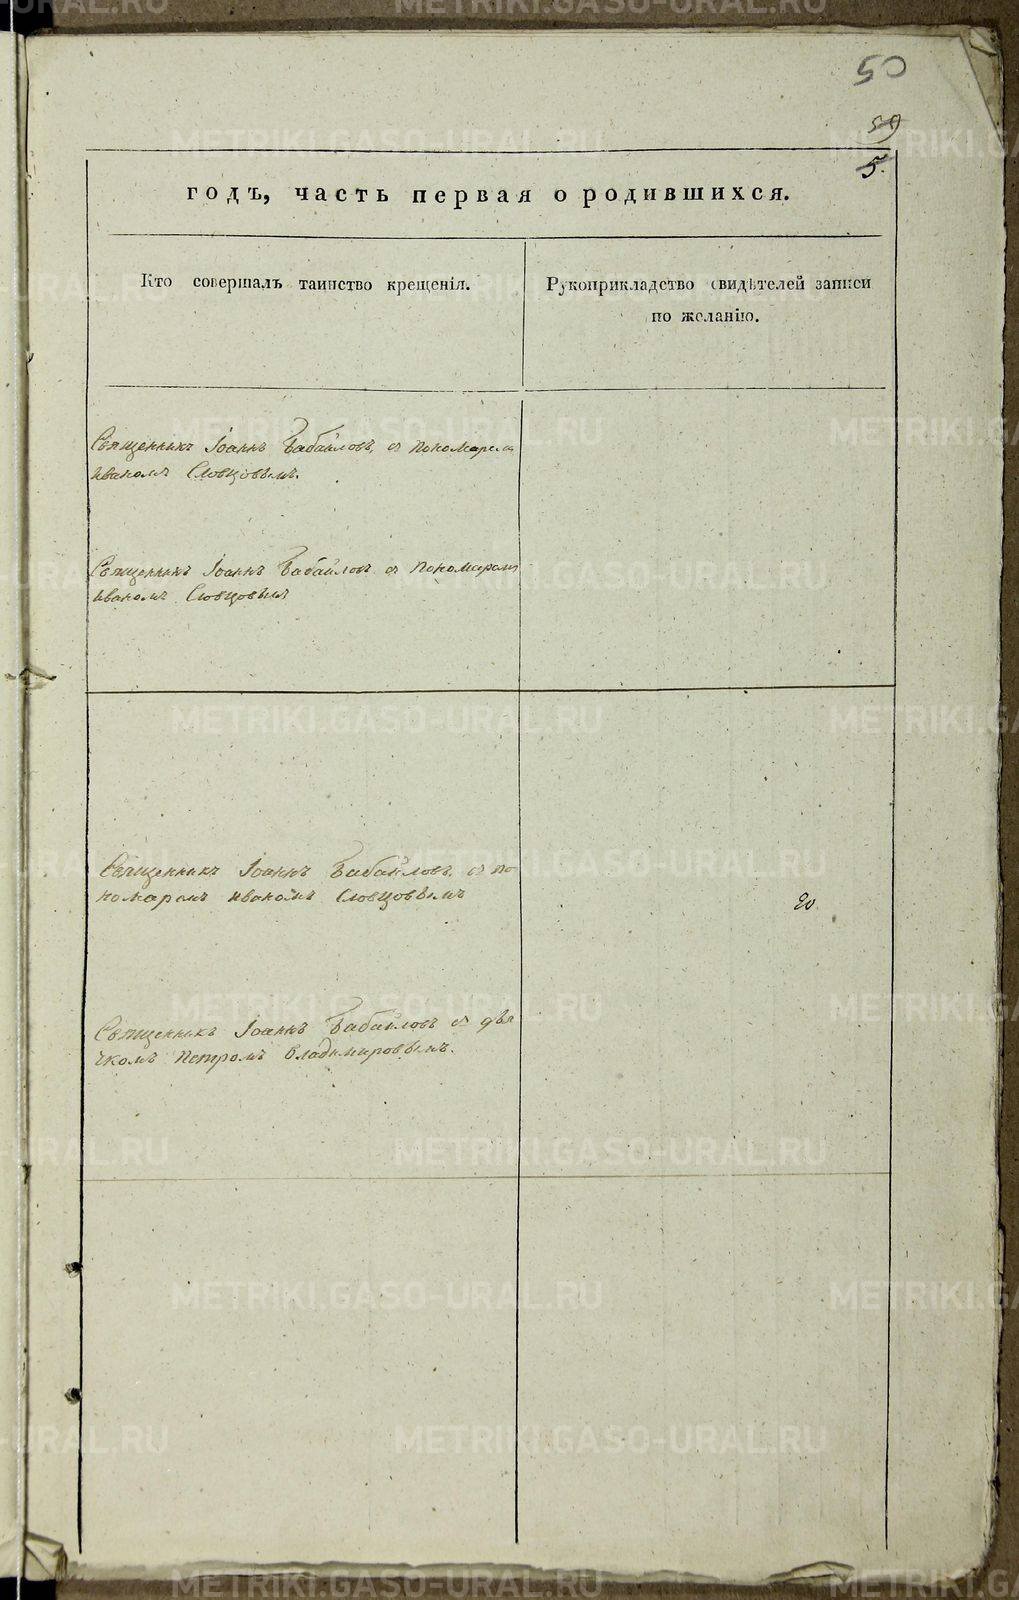 50
59
5.
годъ, часть первая о родившихся.
Кто совершалъ таинство крещенія.
Рукоприкладство свидѣтелей записи
по желанію.
Священникъ Іоаннъ Бабайловъ, съ пономаремъ
Иваномъ Словцовымъ.
Священникъ Іоаннъ Бабайловъ съ пономаремъ
Иваномъ Словцовымъ
Священникъ Іоаннъ Бабайловъ, съ по
номаремъ Иваномъ Словцовымъ
Священникъ Іоаннъ Бабайловъ съ дья
чкомъ Петромъ Владимировымъ.
METRIKI.GASO-URAL.RU